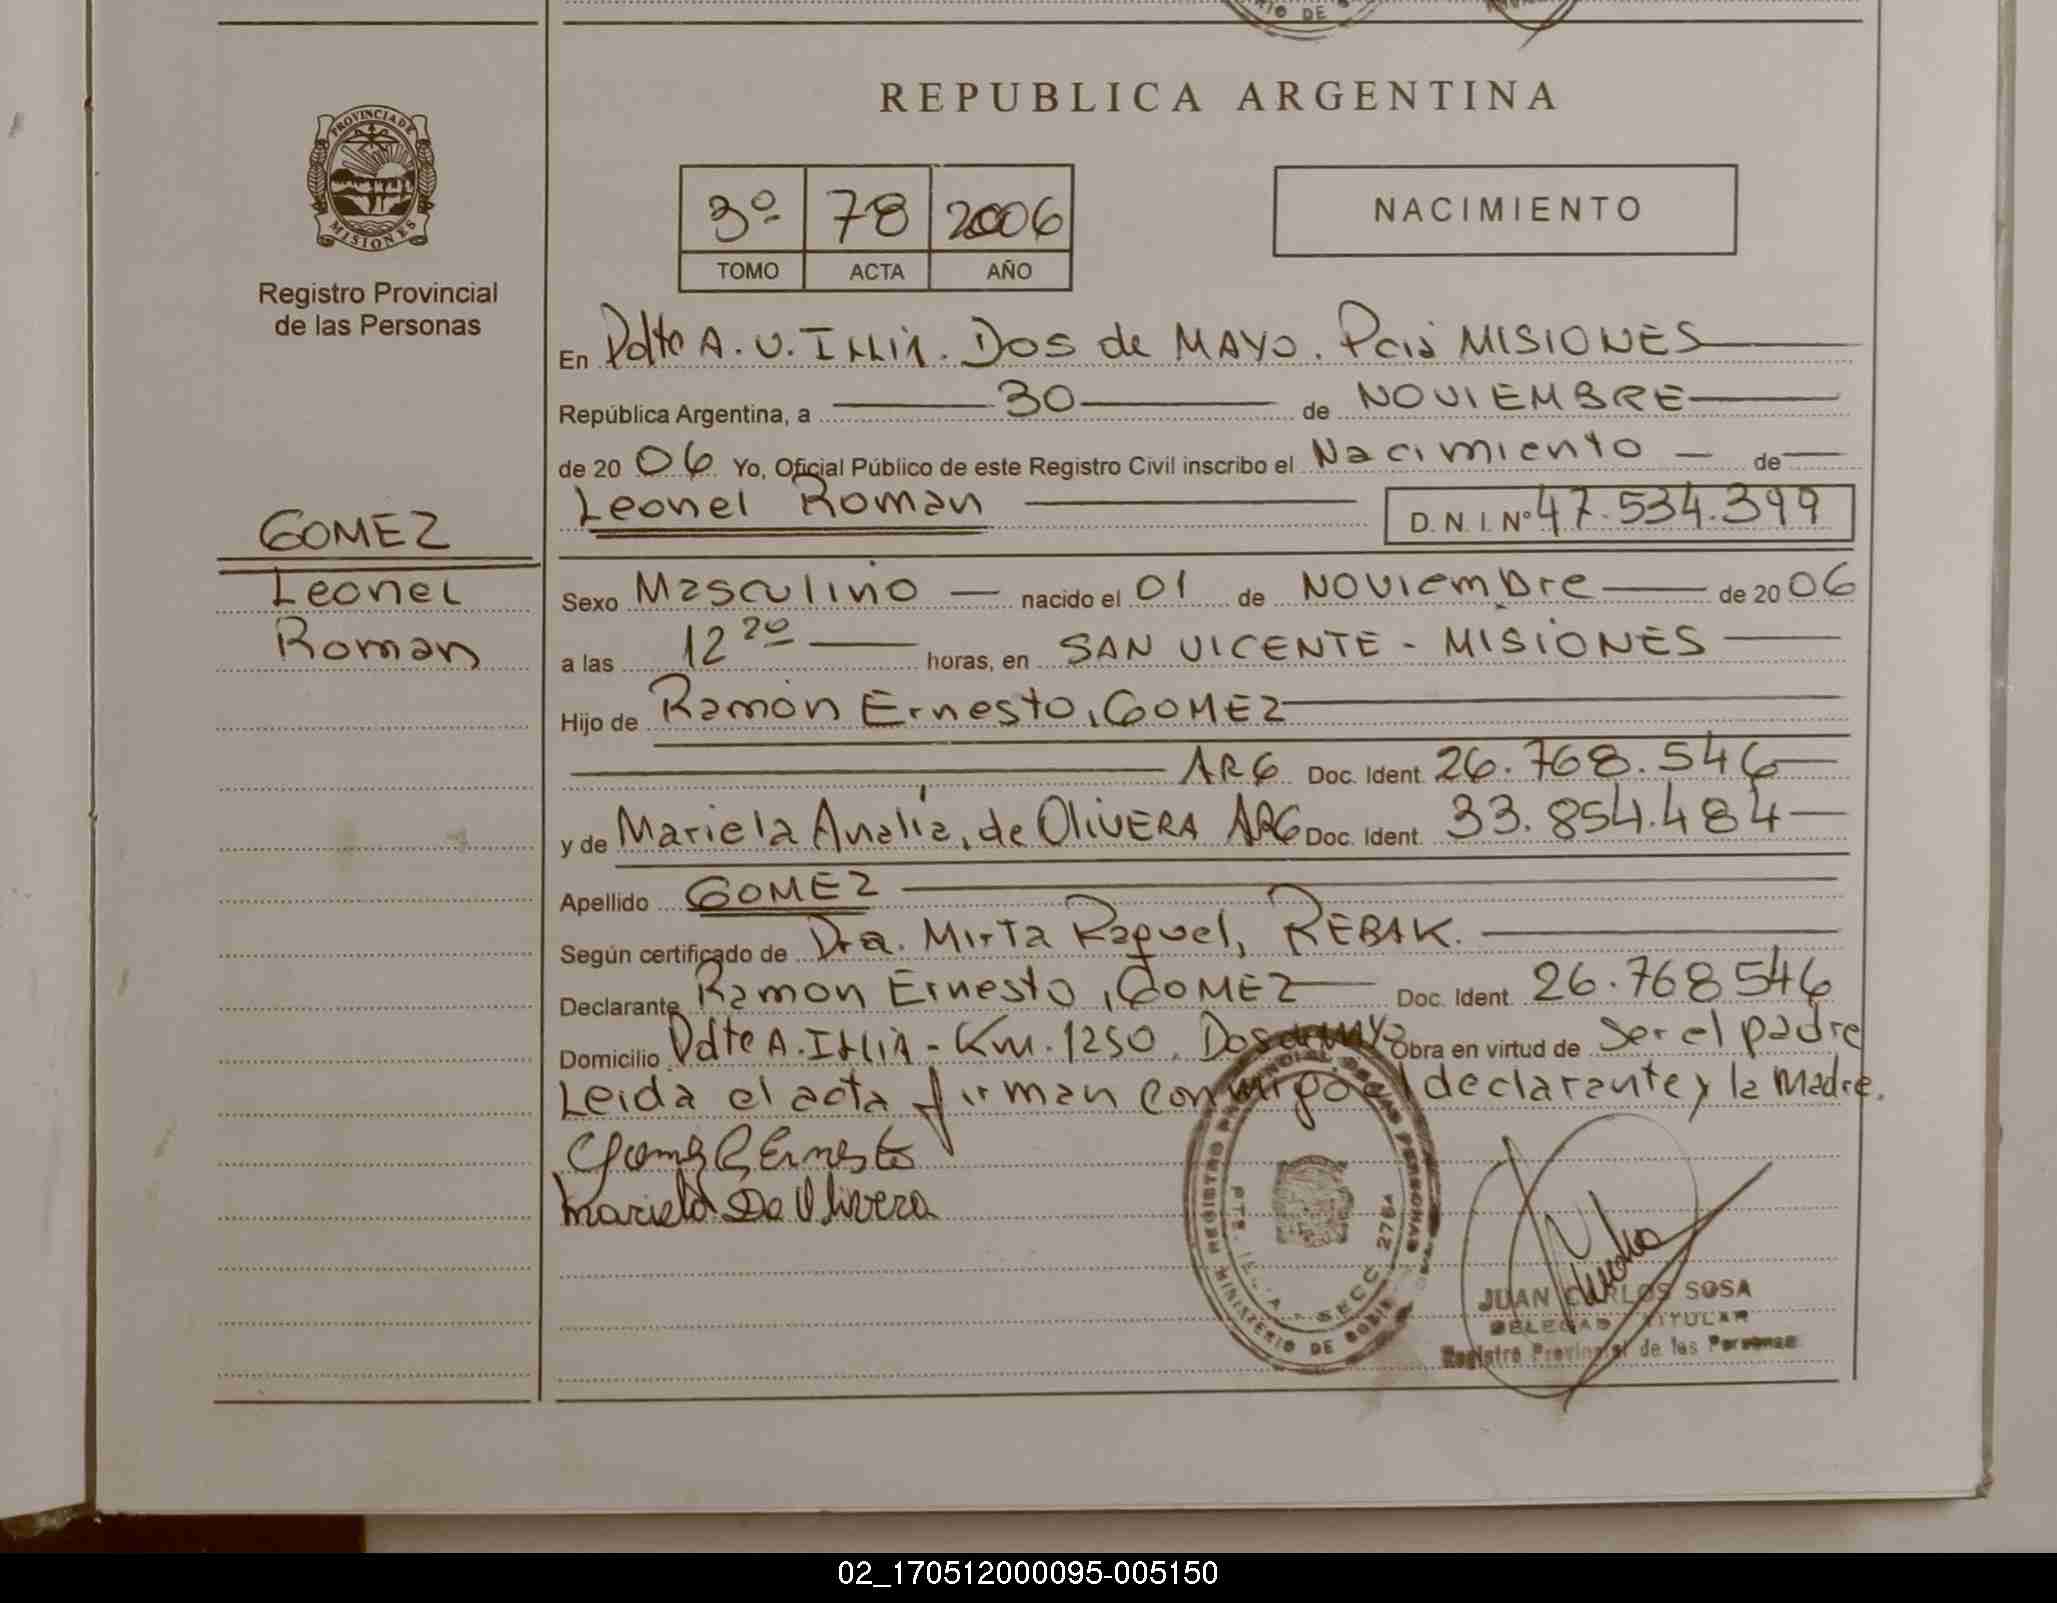 REPUBLICA ARGENTINA
PROVINCIA DE
MISIONES
Registro Provincial
de las Personas
3º 78 2006
TOMO ACTA AÑO
NACIMIENTO
En Pdte A. U. Illia. Dos de MAYO. Pcia MISIONES
República Argentina, a 30 de NOVIEMBRE
de 20 06 Yo, Oficial Público de este Registro Civil inscribo el Nacimiento de
Leonel Roman D. N. I. Nº 47.534.399
GOMEZ
Leonel
Roman
Sexo Masculino nacido el 01 de NOVIEMBRE de 20 06
a las 12 20 horas, en SAN VICENTE - MISIONES
Hijo de Ramón Ernesto, GOMEZ
ARG Doc. Ident. 26.768.546
y de Mariela Analía, de OLIVERA ARG Doc. Ident. 33.854.484
Apellido GOMEZ
Según certificado de Dra. Mirta Raquel, REBAK.
Declarante Ramon Ernesto, GOMEZ Doc. Ident. 26.768546
Domicilio Pdte A. Illia - Km. 1250. Dos de Mayo Obra en virtud de ser el padre
Leida el acta firman conmigo el declarante y la Madre.
Gomez R Ernesto
Mariela De Olivera
REGISTRO PROVINCIAL DE LAS PERSONAS
SECC 2784
MINISTERIO DE
JUAN CARLOS SOSA
DELEGADO TITULAR
Registro Provincial de las Personas
02_170512000095-005150